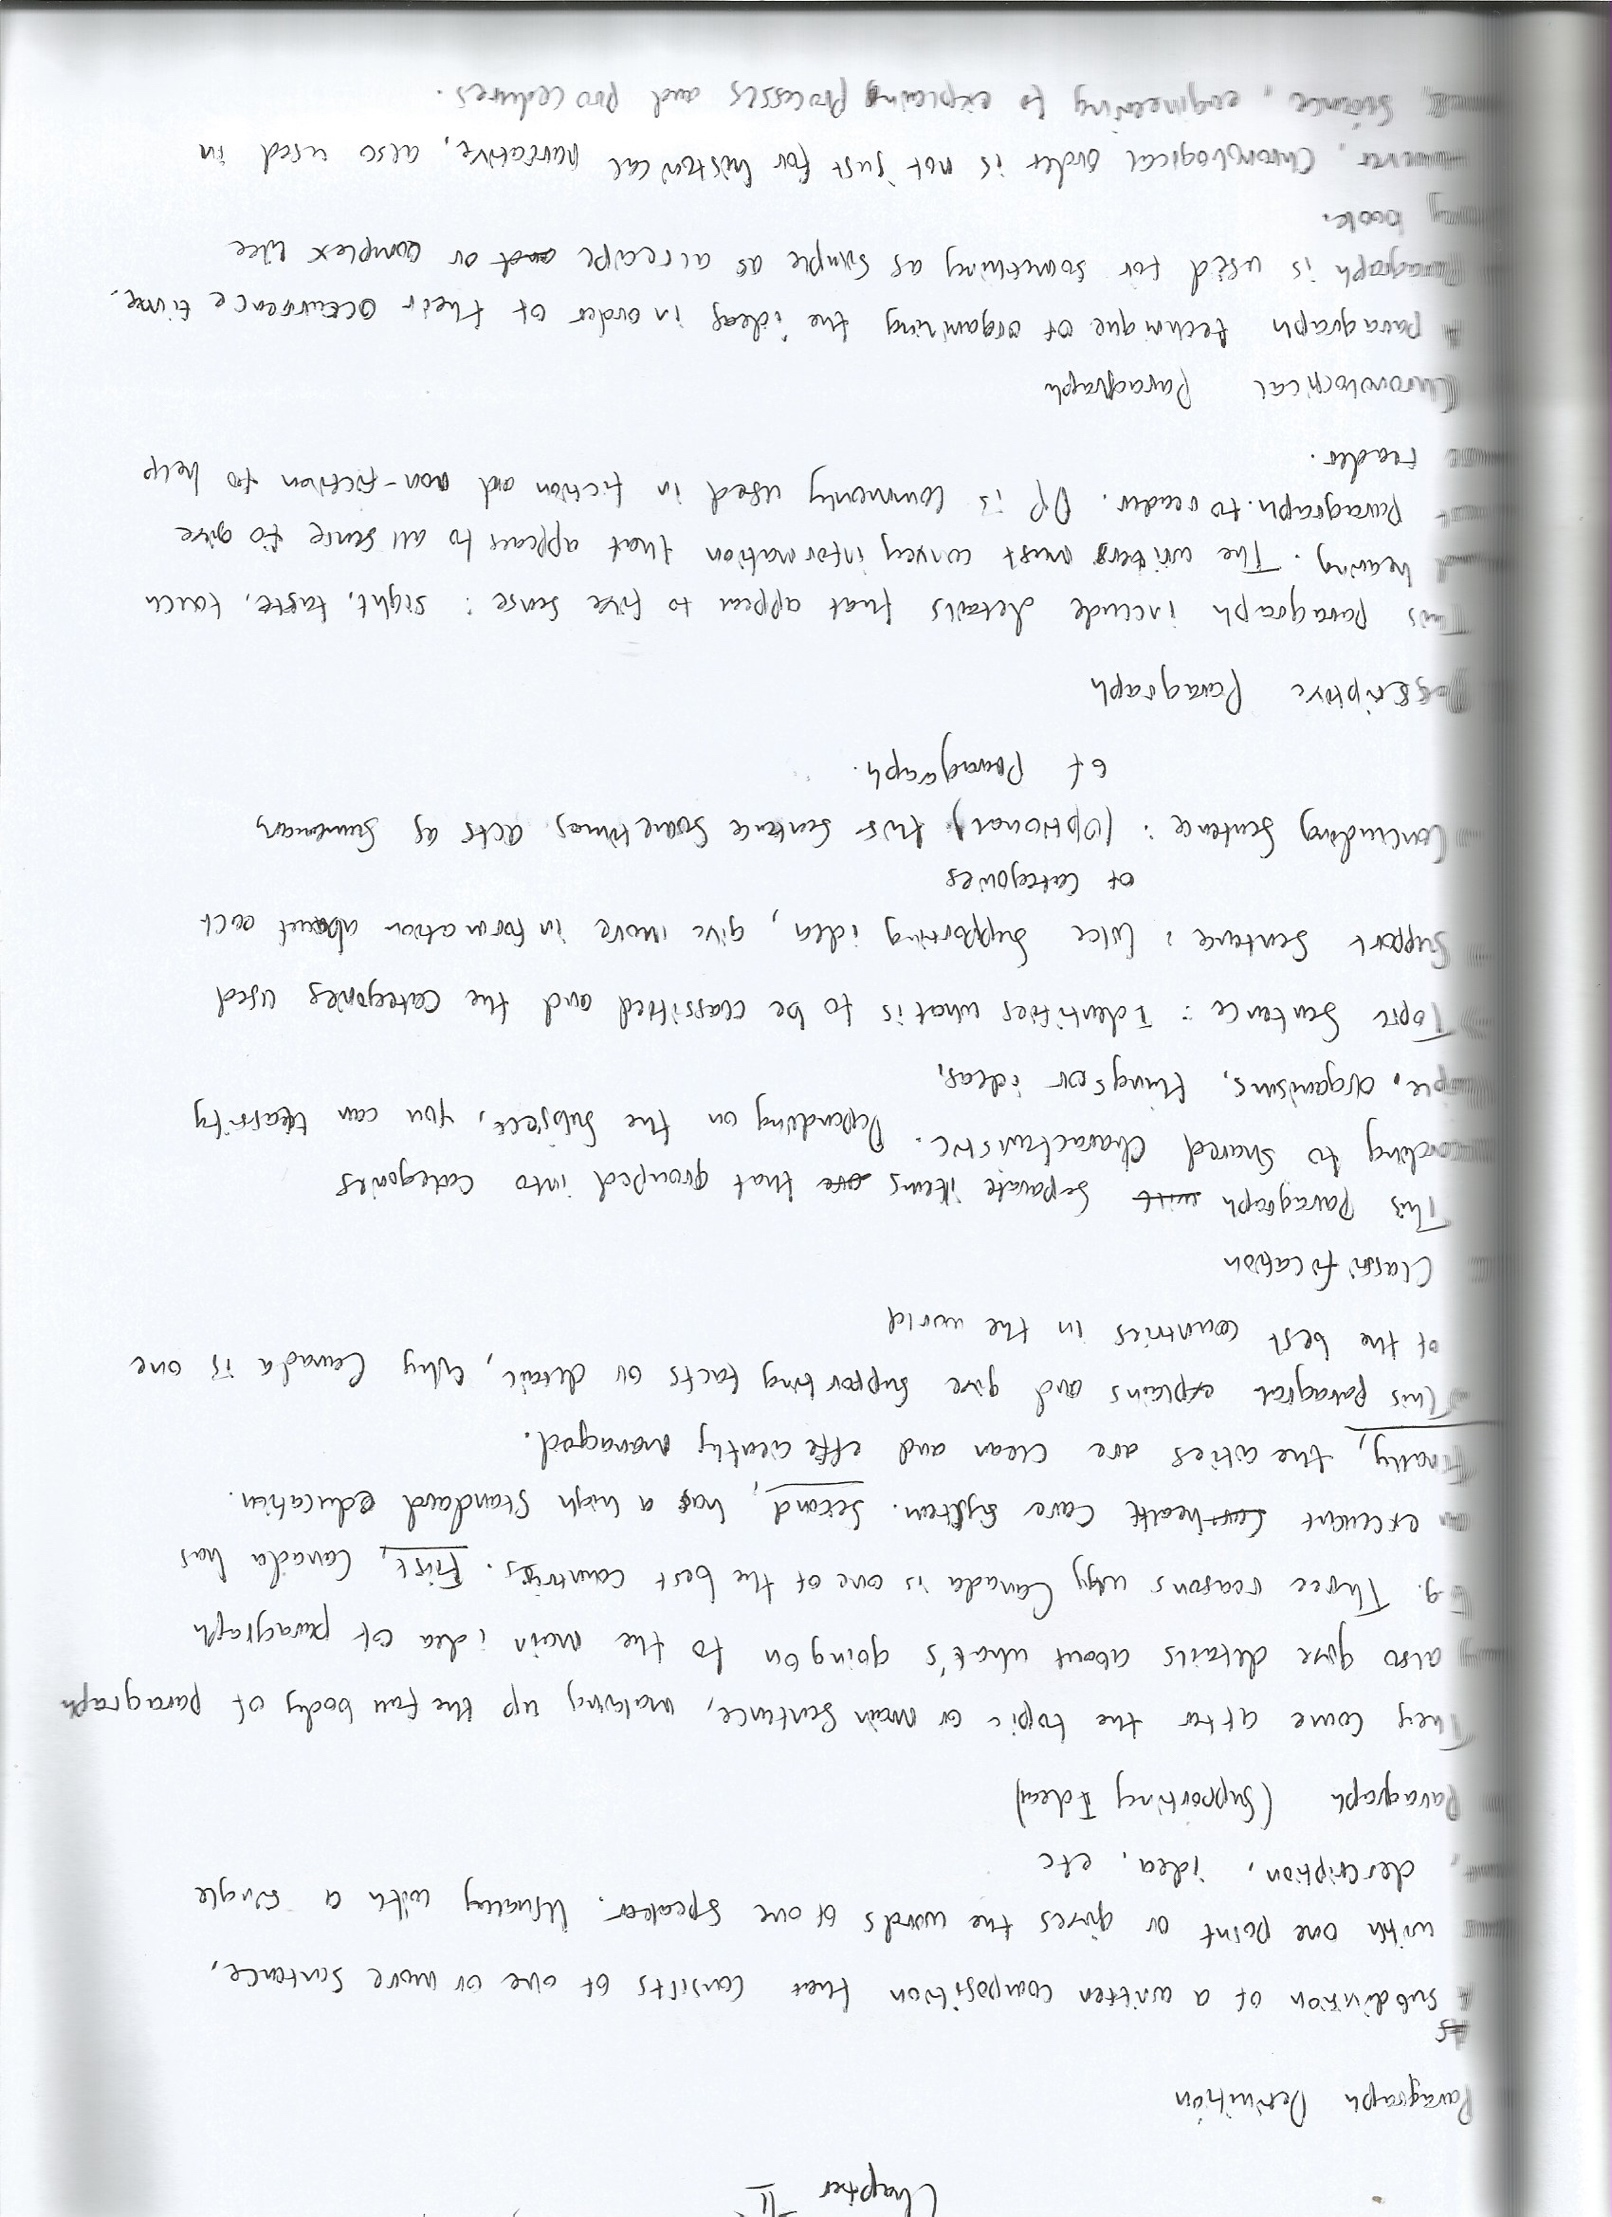 Chapter II
Paragraph Definition
A subdivision of a written composition that consists of one or more sentence,
with one point or gives the words of one speaker. Usually with a single
description, idea, etc
Paragraph (Supporting Idea)
They come after the topic or main sentence, making up the full body of paragraph
also give details about what's going on to the main idea of paragraph
E.g. Three reasons why Canada is one of the best countries. First, Canada has
an excelent health care system. Second, has a high standard education.
Finally, the cities are clean and effeciently managed.
This paragrah explains and give supporting facts or detail, why Canada is one
of the best countries in the world
Classification
This Paragraph separate items that grouped into categories
to shared characteristic. Depending on the subject, you can classify
organisms, things or ideas,
Topic Sentence : Identifies what is to be classified and the categories used
Support Sentence : Like supporting idea, give more information about each
of categories
Concluding Sentence : (Optional) this sentence sometimes acts as summary
of Paragraph.
Descriptive Paragraph
This paragraph include details that appear to five sense : sight, taste, touch
hearing. The writers must convey information that appears to all sense to give
Paragraph to reader. DP is commonly used in fiction and non-fiction to help
reader.
Chronological Paragraph
A paragraph technique of organizing the ideas in order of their occurrence time.
Paragraph is used for something as simple as a recipe or complex like
book.
However, Chronological order is not just for historical narrative, also used in
Science, engineering to explaining processes and procedures.